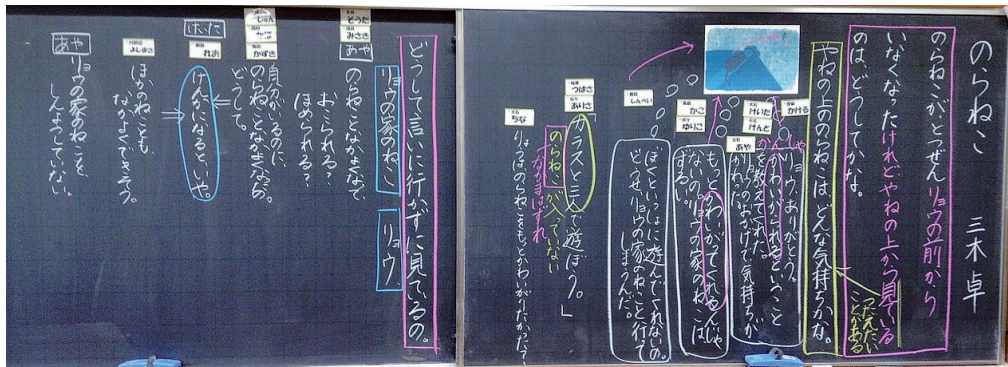 のらねこ
三木卓
のらねこがとつぜんリョウの前から
いなくなったけれどやねの上から見ている
のは、どうしてかな。
つたえたい
ことがある
やねの上ののらねこは、どんな気持ちかな。
かける
けいた
けんと
あや
リョウ、ありがとう。
かわいがられるということ
を教えてくれた。
のおかげで気持ちが
かわった。
かこ
ゆりこ
もっとかわいがってくれるんじゃ
ないの。リョウの家のねこは
する。
しんぺい
ぼくといっしょに遊んでくれないの。
どうせ、リョウの家のねこと行って
しまうんだ。
つばさ
ありさ
「カラスと三人で遊ぼう。」
のらねこが入っていない
なかまはずれ
ちな
りょうはのらねこをもっとかわいがりたかった?
どうして言いに行かずに見ているの。
リョウの家のねこ
リョウ、
そうた
みさき
あや
のらねことなかよくなって
おこられる?
ほめられる?
じゅん
かずき
自分がいるのに、
のらねことなかよくなって
どうして。
けいた
れお
けんかになるといや。
よしまさ
ほかのねことも、
なかよくできそう。
あや
リョウの家のねこのことを、
しんようしていない。